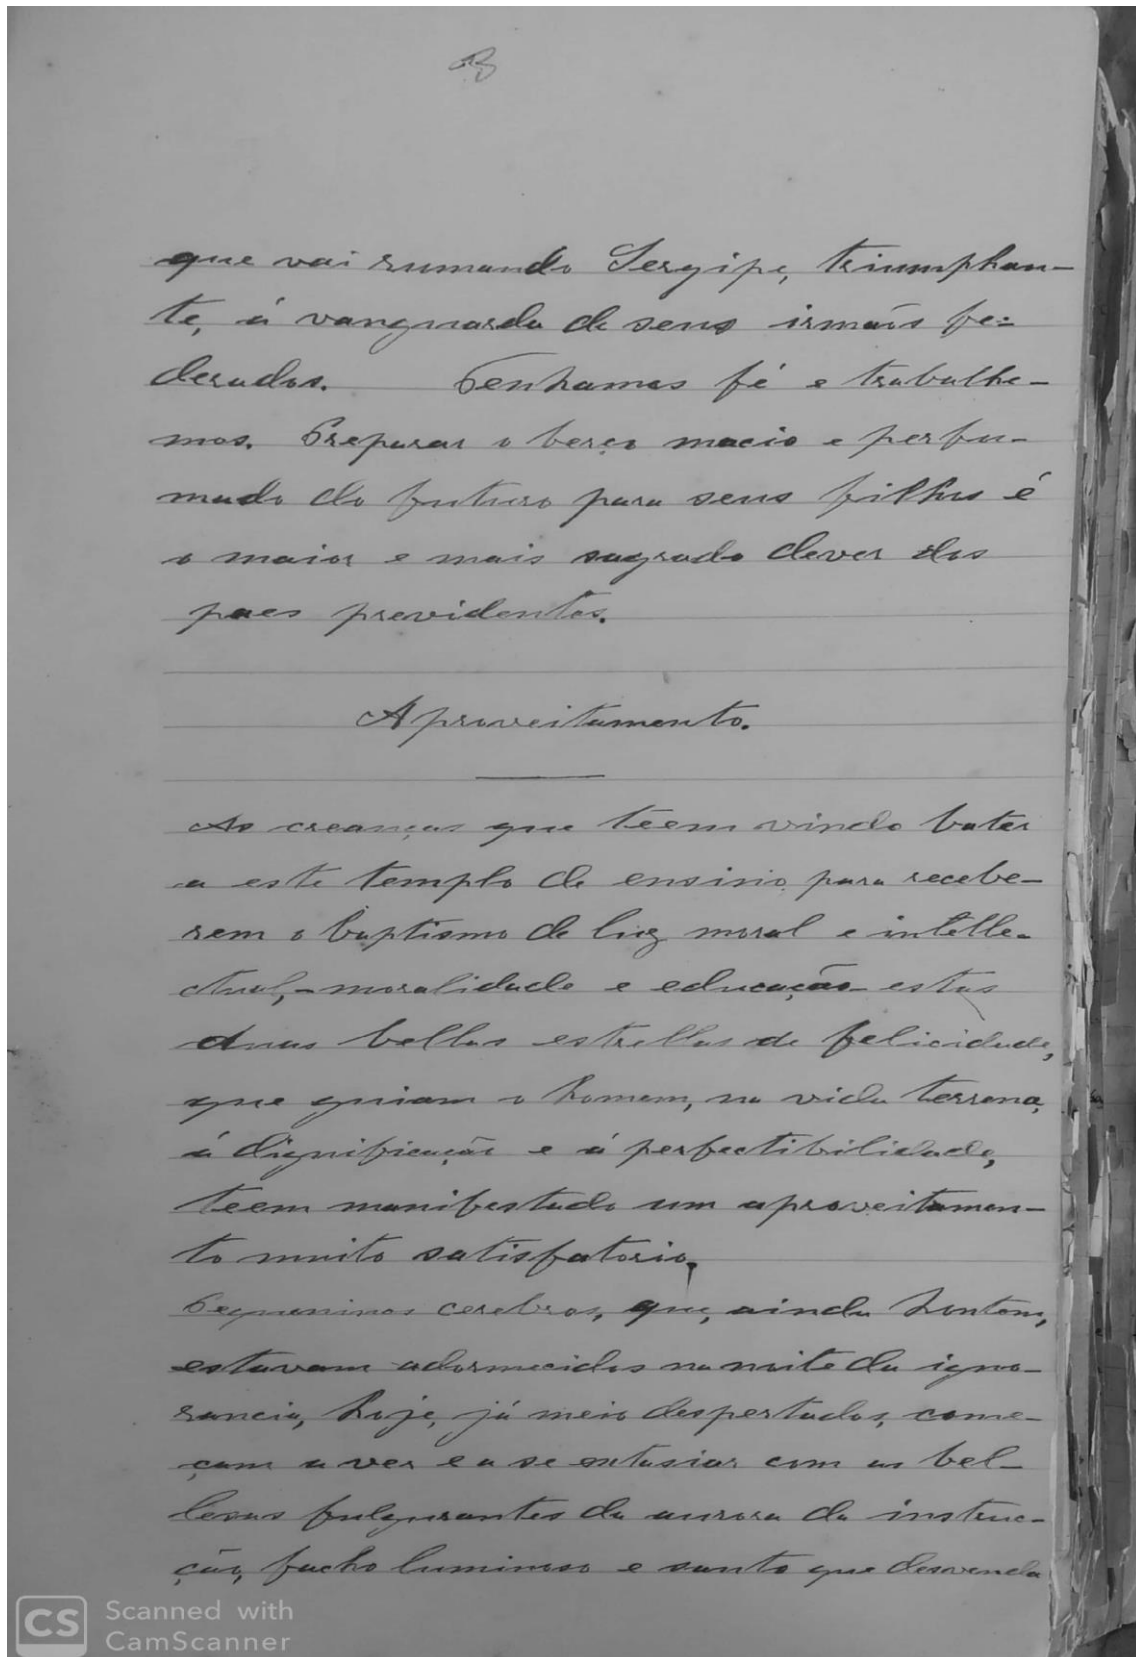 que vai rumando Sergipe, triumphan-
te, á vanguarda de seus irmãos fe-
derados. Tenhamos fé e trabalhe-
mos. Preparar o berço macio e perfu-
mado do futuro para seus filhos é
o maior e mais sagrado dever dos
paes previdentes.
Aproveitamento.
As creanças que teem vindo bater
a este templo de ensino, para recebe-
rem o baptismo de luz moral e intelle-
ctual, - moralidade e educação - estas
duas bellas estrellas de felicidade,
que guiam o homem, na vida terrena,
á dignificação e á perfectibilidade,
teem manifestado um aproveitamen-
to muito satisfatorio.
Pequeninos cerebros, que, ainda hontem,
estavam adormecidos na noite da igno-
rancia, hoje, já meio despertados, come-
çam a ver e a se extasiar com as bel-
lesas fulgurantes da aurora da instruc-
ção, facho luminoso e santo que desvenda
CS Scanned with
CamScanner